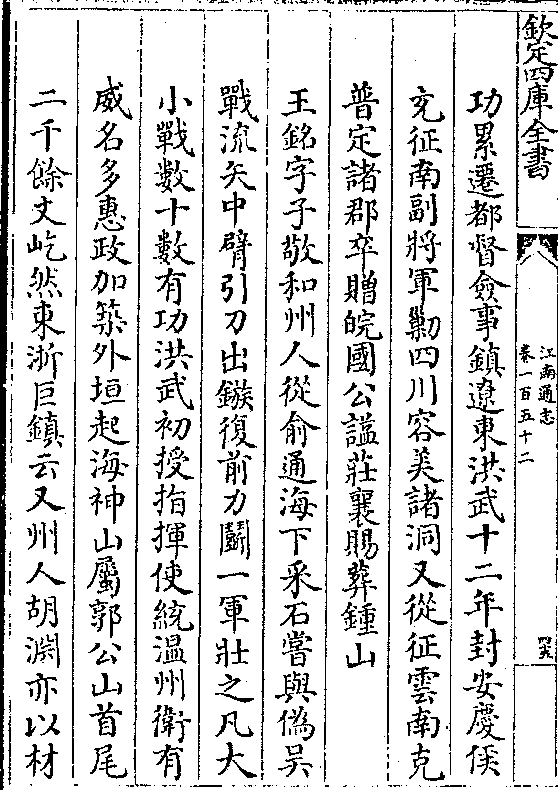 欽定四庫全書
江南通志
卷一百五十二
功累遷都督僉事鎮遼東洪武十二年封安慶侯
充征南副將軍勦四川容美諸洞又從征雲南克
普定諸郡卒贈皖國公諡莊襄賜葬鍾山
王銘字子敬和州人從俞通海下采石嘗與偽吳
戰流矢中臂引刀出鏃復前力鬭一軍壯之凡大
小戰數十數有功洪武初授指揮使統温州衛有
威名多惠政加築外垣起海神山屬郭公山首尾
二千餘丈屹然東浙巨鎮云又州人胡淵亦以材